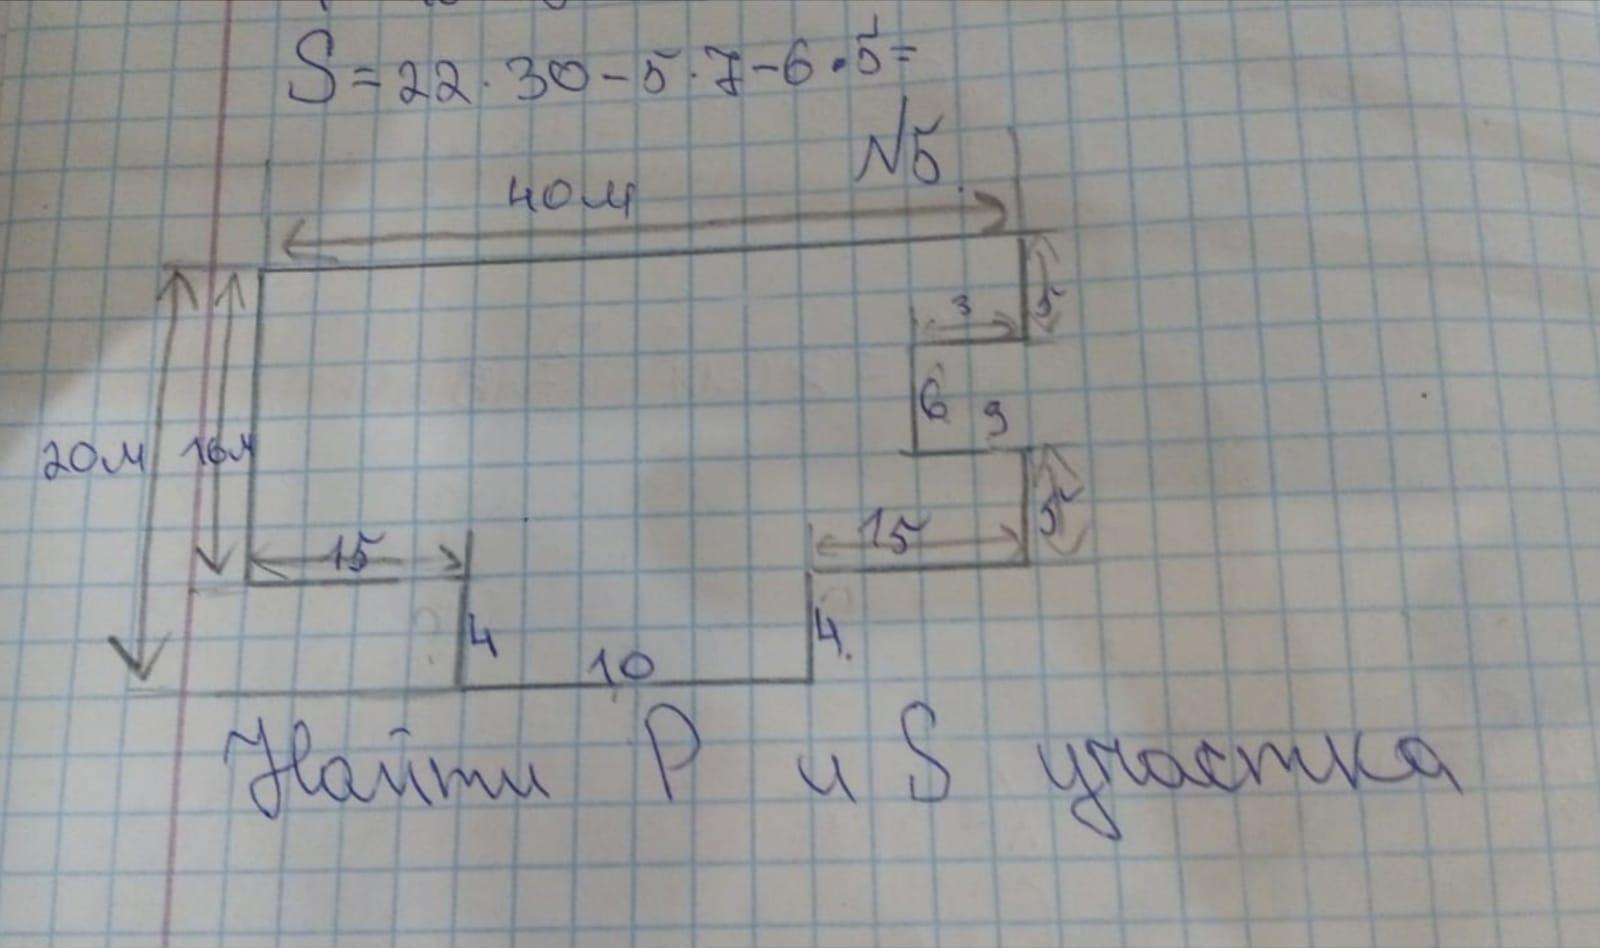 S=22·30-5·7-6·5=
N5.
40м
3
5
6
3
20м
16м
15
15
5
4
10
4.
Найти P и S участка